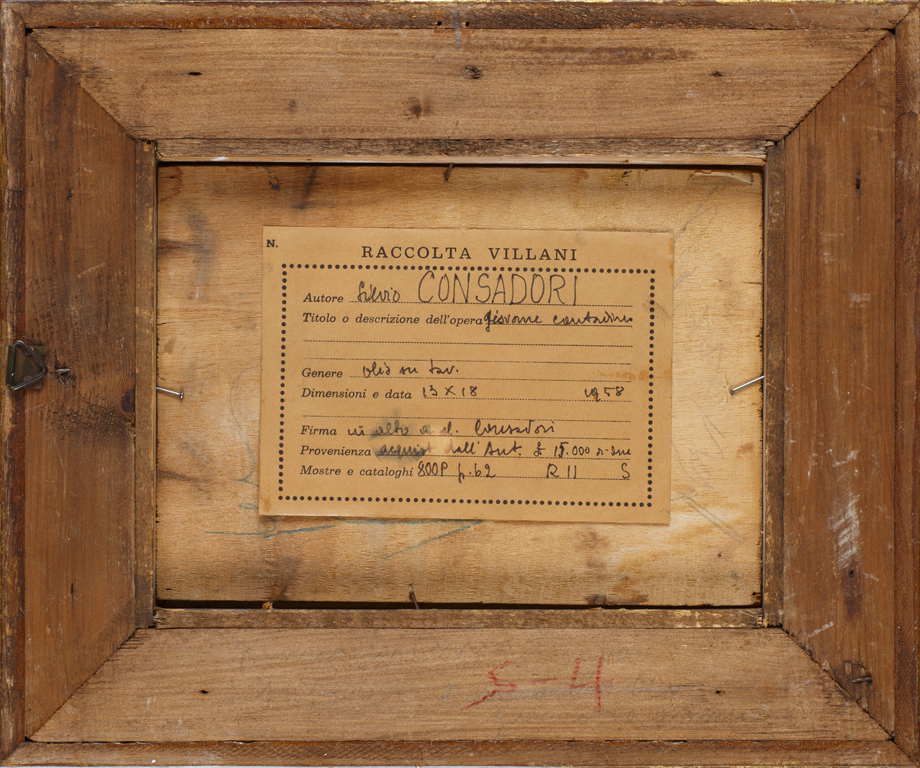 N.
RACCOLTA VILLANI
Autore Silvio CONSADORI
Titolo o descrizione dell'opera giovane contadino
Genere olio su tav.
Dimensioni e data 13 X 18 1958
Firma in alto a d. Consadori
Provenienza acquist dall'Aut. £ 15.000
Mostre e cataloghi 800P p.62 R II S
5-4